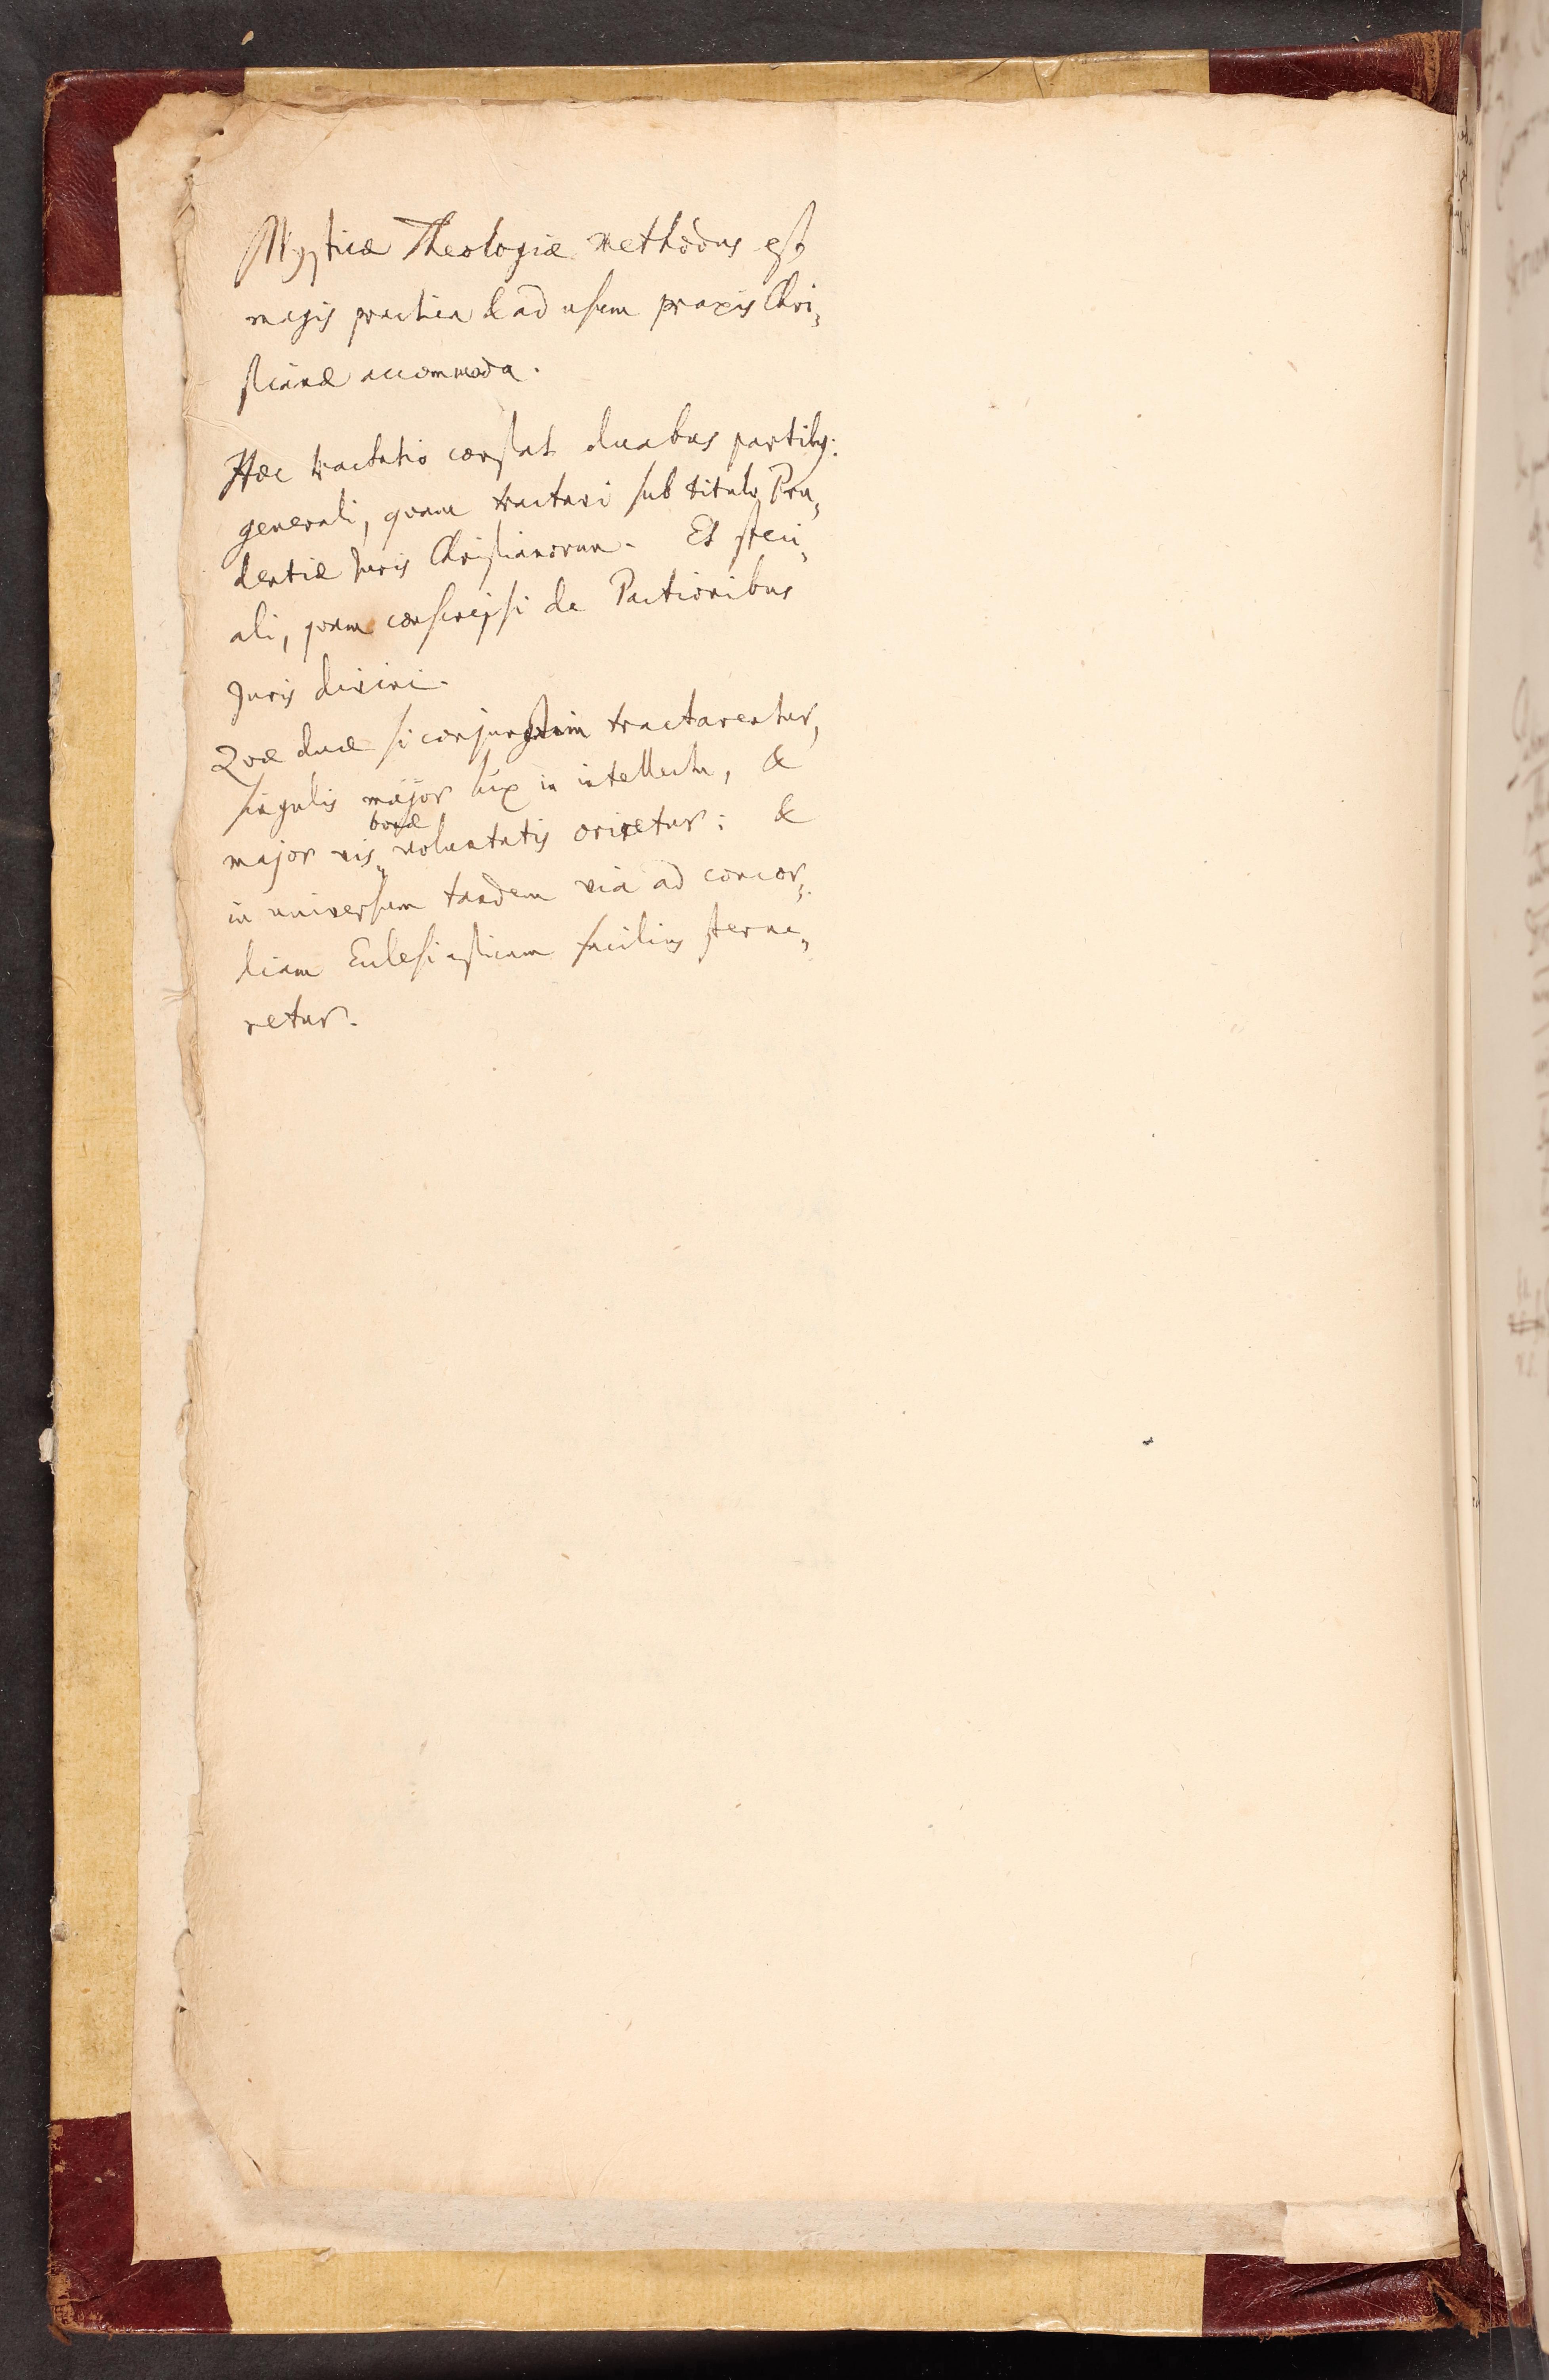 Mysticæ Theologiæ methodus est
magis practica & ad usum praxis Chri„
stianæ accommoda.
Hæc tractatio constat duabus partibus:
generali, quam tractavi sub titulo Pru„
dentiæ Juris Christianorum. Et speci„
ali, quam conscripsi de Pactionibus
Juris divini.
Qvæ duæ si conjunctim tractarentur,
singulis major lux in intellectu, &
bonæ
major vis voluntatis oriretur: &
in universum tandem via ad concor„
diam Ecclesiasticam facilius sterne„
retur.